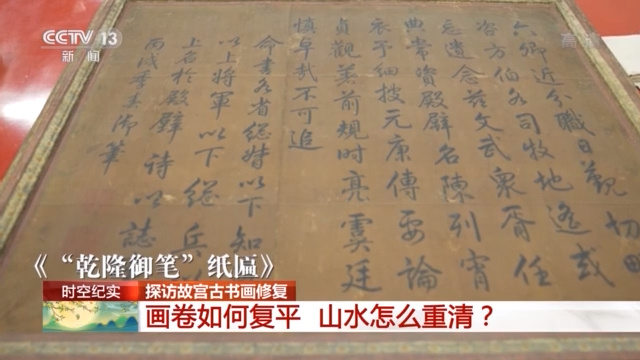 CCTV 13
新闻
高清
六卿近分職日觀切
咨方伯各司牧地遙或
忘遺念茲文武衆胥任
典常資殿壁名陳列宵
衣予細披元康傳要論
貞觀美前規時亮虞廷
慎卓哉不可追
命書各省總督以下知
以上將軍以下總兵
上名於殿壁詩以誌
御筆
《“乾隆御笔”纸匾》
时空纪实 探访故宫古书画修复
画卷如何复平 山水怎么重清？